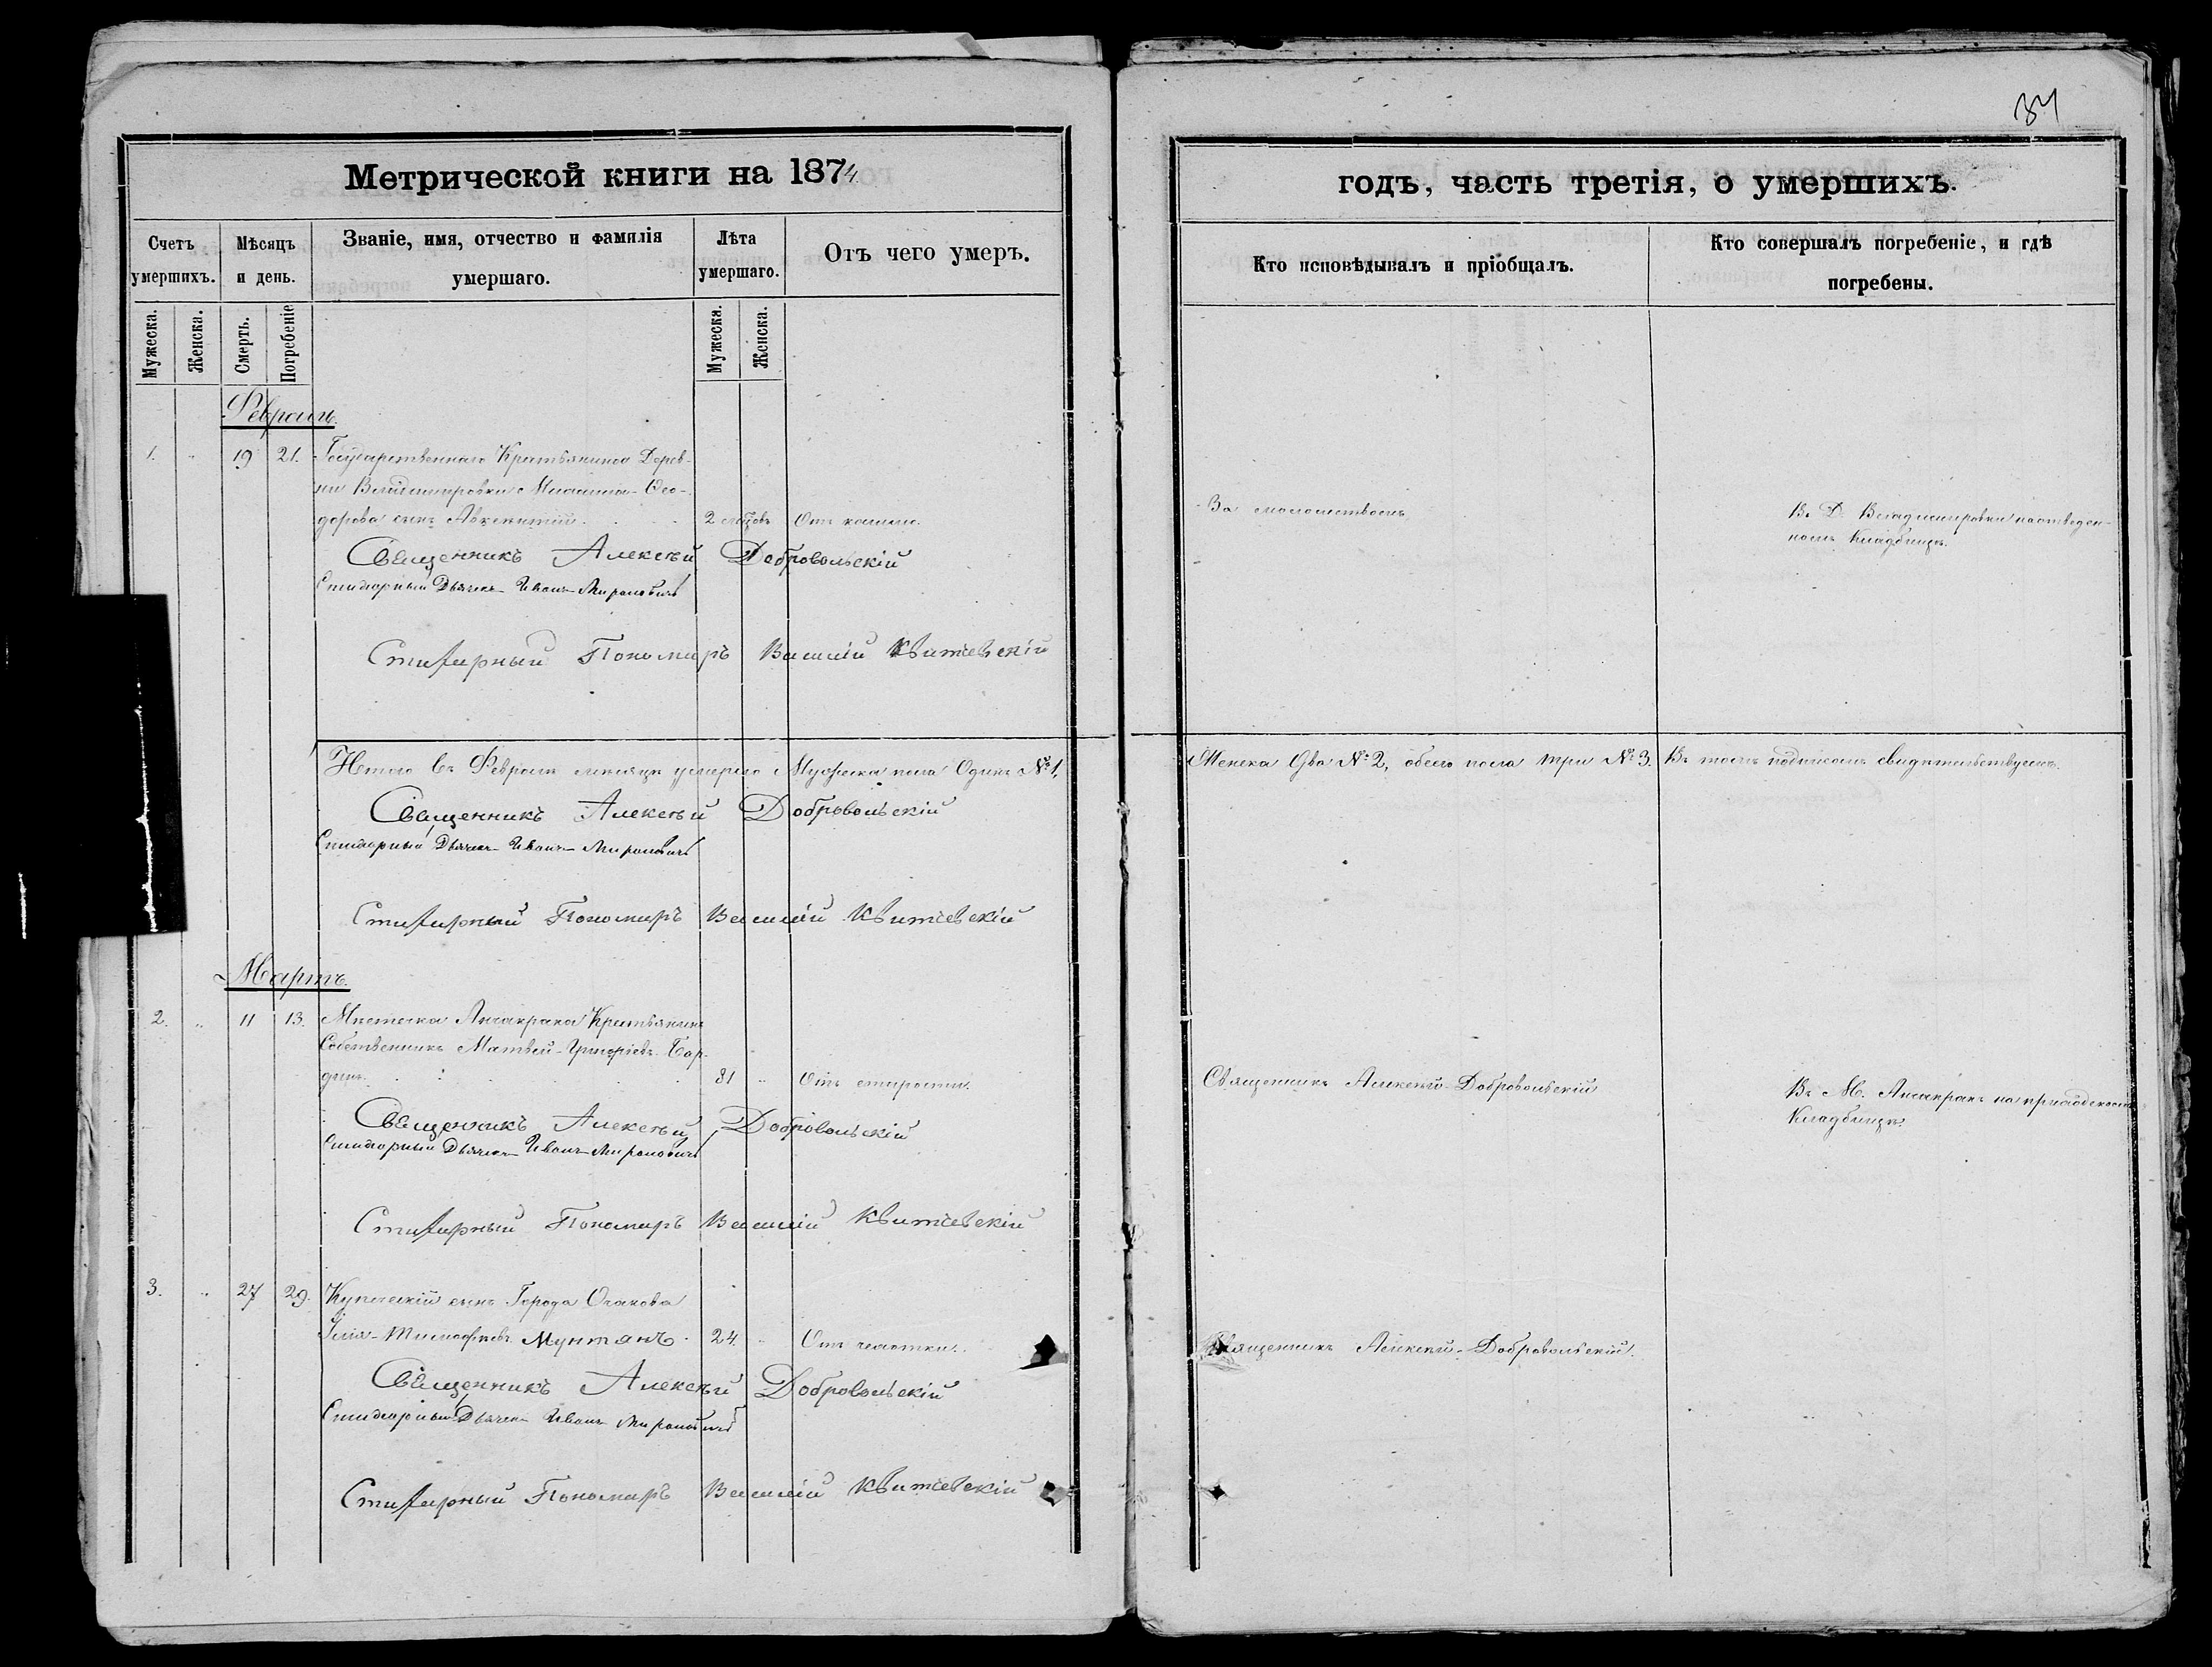 34
Метрической книги на 1874
годъ, часть третія, о умершихъ.
Счетъ умершихъ.
Мѣсяцъ и день.
Званіе, имя, отчество и фамилія умершаго.
Лѣта умершаго.
Отъ чего умеръ.
Кто исповѣдывалъ и пріобщалъ.
Кто совершалъ погребеніе, и гдѣ погребены.
Мужеска.
Женска.
Смерть.
Погребеніе
Мужеска.
Женска.
Февраль.
1. " 19 21. Государственнаго Крестьянина Дерев-
ни Владимировки Михаила Ѳео-
дорова сынъ Авксентій. 2 Отъ кашлю. За малолетствомъ В. Д. Владимировки на отведен-
номъ Кладбищѣ.
Священникъ Алексѣй Добровольскій
Стихарный Дьячекъ Иванъ Мироновичъ
Стихарный Пономарь Василій Квитчевскій
Итого въ Февралѣ месяцѣ умерло Мужеска пола Одинъ №1, Женска два №2, обего пола три №3. Въ томъ подписомъ свидѣтельствуемъ.
Священникъ Алексѣй Добровольскій
Стихарный Дьячекъ Иванъ Мироновичъ
Стихарный Пономарь Василій Квитчевскій
Мартъ.
2. " 11 13. Мѣстечка Анчакрака Крестьянинъ
Собственникъ Матвей Григоріевъ Бар-
81 " Отъ старости. Священникъ Алексѣй Добровольскій Въ М. Анчакракѣ на приходскомъ
Кладбищѣ.
Священникъ Алексѣй Добровольскій
Стихарный Дьячекъ Иванъ Мироновичъ
Стихарный Пономарь Василій Квитчевскій
3. " 27 29. Купеческій сынъ Города Очакова
Илія Тимофѣевъ Мунтянъ. 24. " Отъ чахотки. Священникъ Алексѣй Добровольскій.
Священникъ Алексѣй Добровольскій
Стихарный Дьячекъ Иванъ Мироновичъ
Стихарный Пономарь Василій Квитчевскій